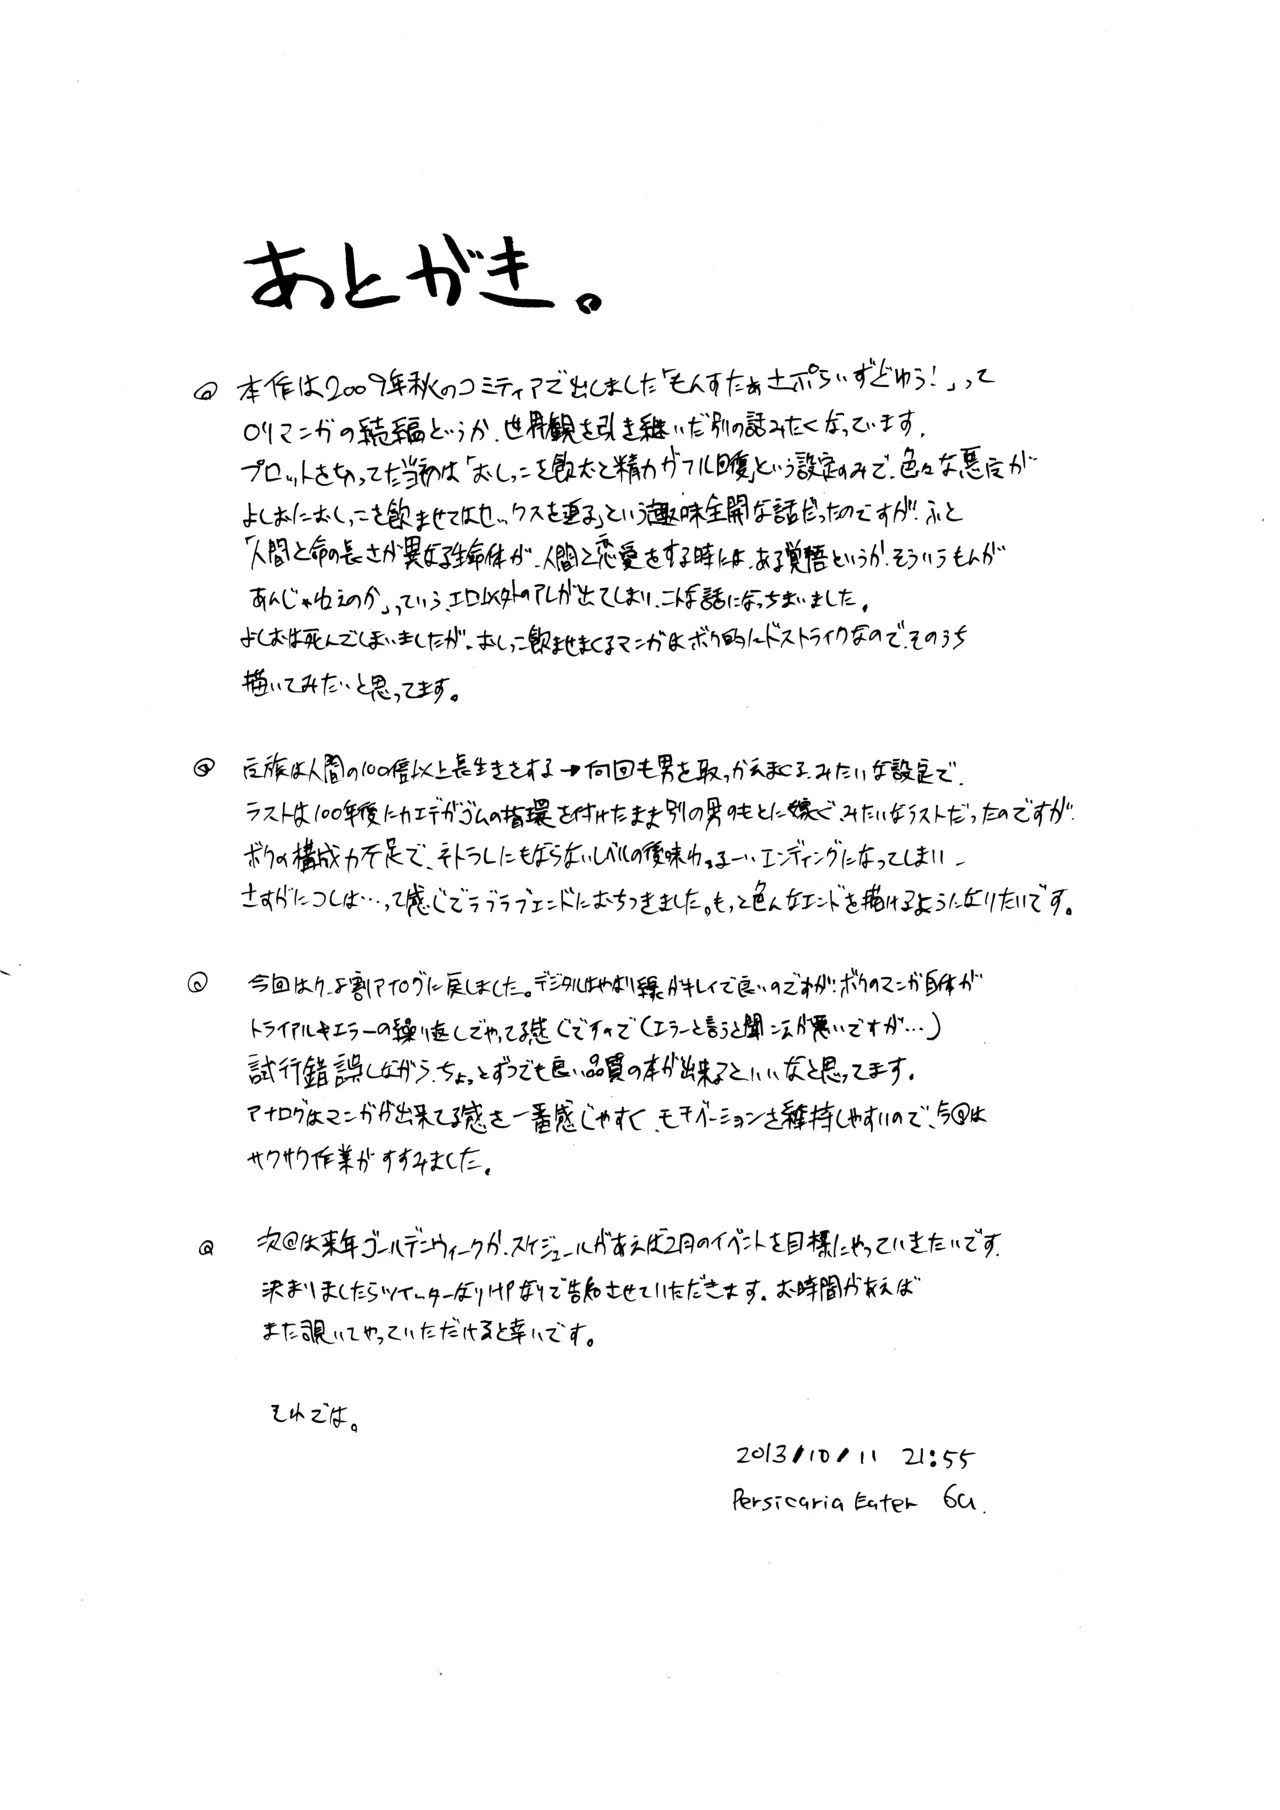 あとがき。
◎ 本作は2009年秋のコミティアで出しました「もんすたぁさぷらいずどゆう!」って
ロリマンガの続編というか、世界観を引き継いだ別の話みたくなっています。
プロットを切ってた当初は「おしっこを飲むと精力がフル回復」という設定のみで、色々な悪魔が
よしおにおしっこを飲ませてはセックスを重る」という趣味全開な話だったのですが、ふと
「人間と命の長さが異なる生命体が、人間と恋愛をする時には、ある覚悟というか、そういうもんが
あんじゃねえのか」っていう、エロ以外のアレが出てしまい、こんな話になっちまいました。
よしおは死んでしまいましたが、おしっこ飲ませまくるマンガはボク的にドストライクなので、そのうち
描いてみたいと思ってます。
◎ 魔族は人間の100倍以上長生きをする→何回も男を取っかえまくる、みたいな設定で、
ラストは100年後にカエデがゴムの指環を付けたまま別の男のもとに嫁ぐ、みたいなラストだったのですが、
ボクの構成力不足で、ネトラレにもならないレベルの後味わるーいエンディングになってしまい、
さすがにコレは…って感じでラブラブエンドにおちつきました。もっと色んなエンドを描けるようになりたいです。
◎ 今回は9.5割アナログに戻しました。デジタルはやはり線がキレイで良いのですが、ボクのマンガ自体が
トライアル&エラーの繰り返しでやってる感じですので(エラーと言うと聞こえが悪いですが…)
試行錯誤しながら、ちょっとずつでも良い品質の本が出来るといいなと思ってます。
アナログはマンガが出来てる感を一番感じやすく、モチベーションを維持しやすいので、今回は
サクサク作業がすすみました。
◎ 次回は来年ゴールデンウィークか、スケジュールがあえば2月のイベントを目標にやっていきたいです。
決まりましたらツイッターなりHPなりで告知させていただきます。お時間があえば
また覗いてやっていただけると幸いです。
それでは。
2013/10/11 21:55
Persicaria Eater